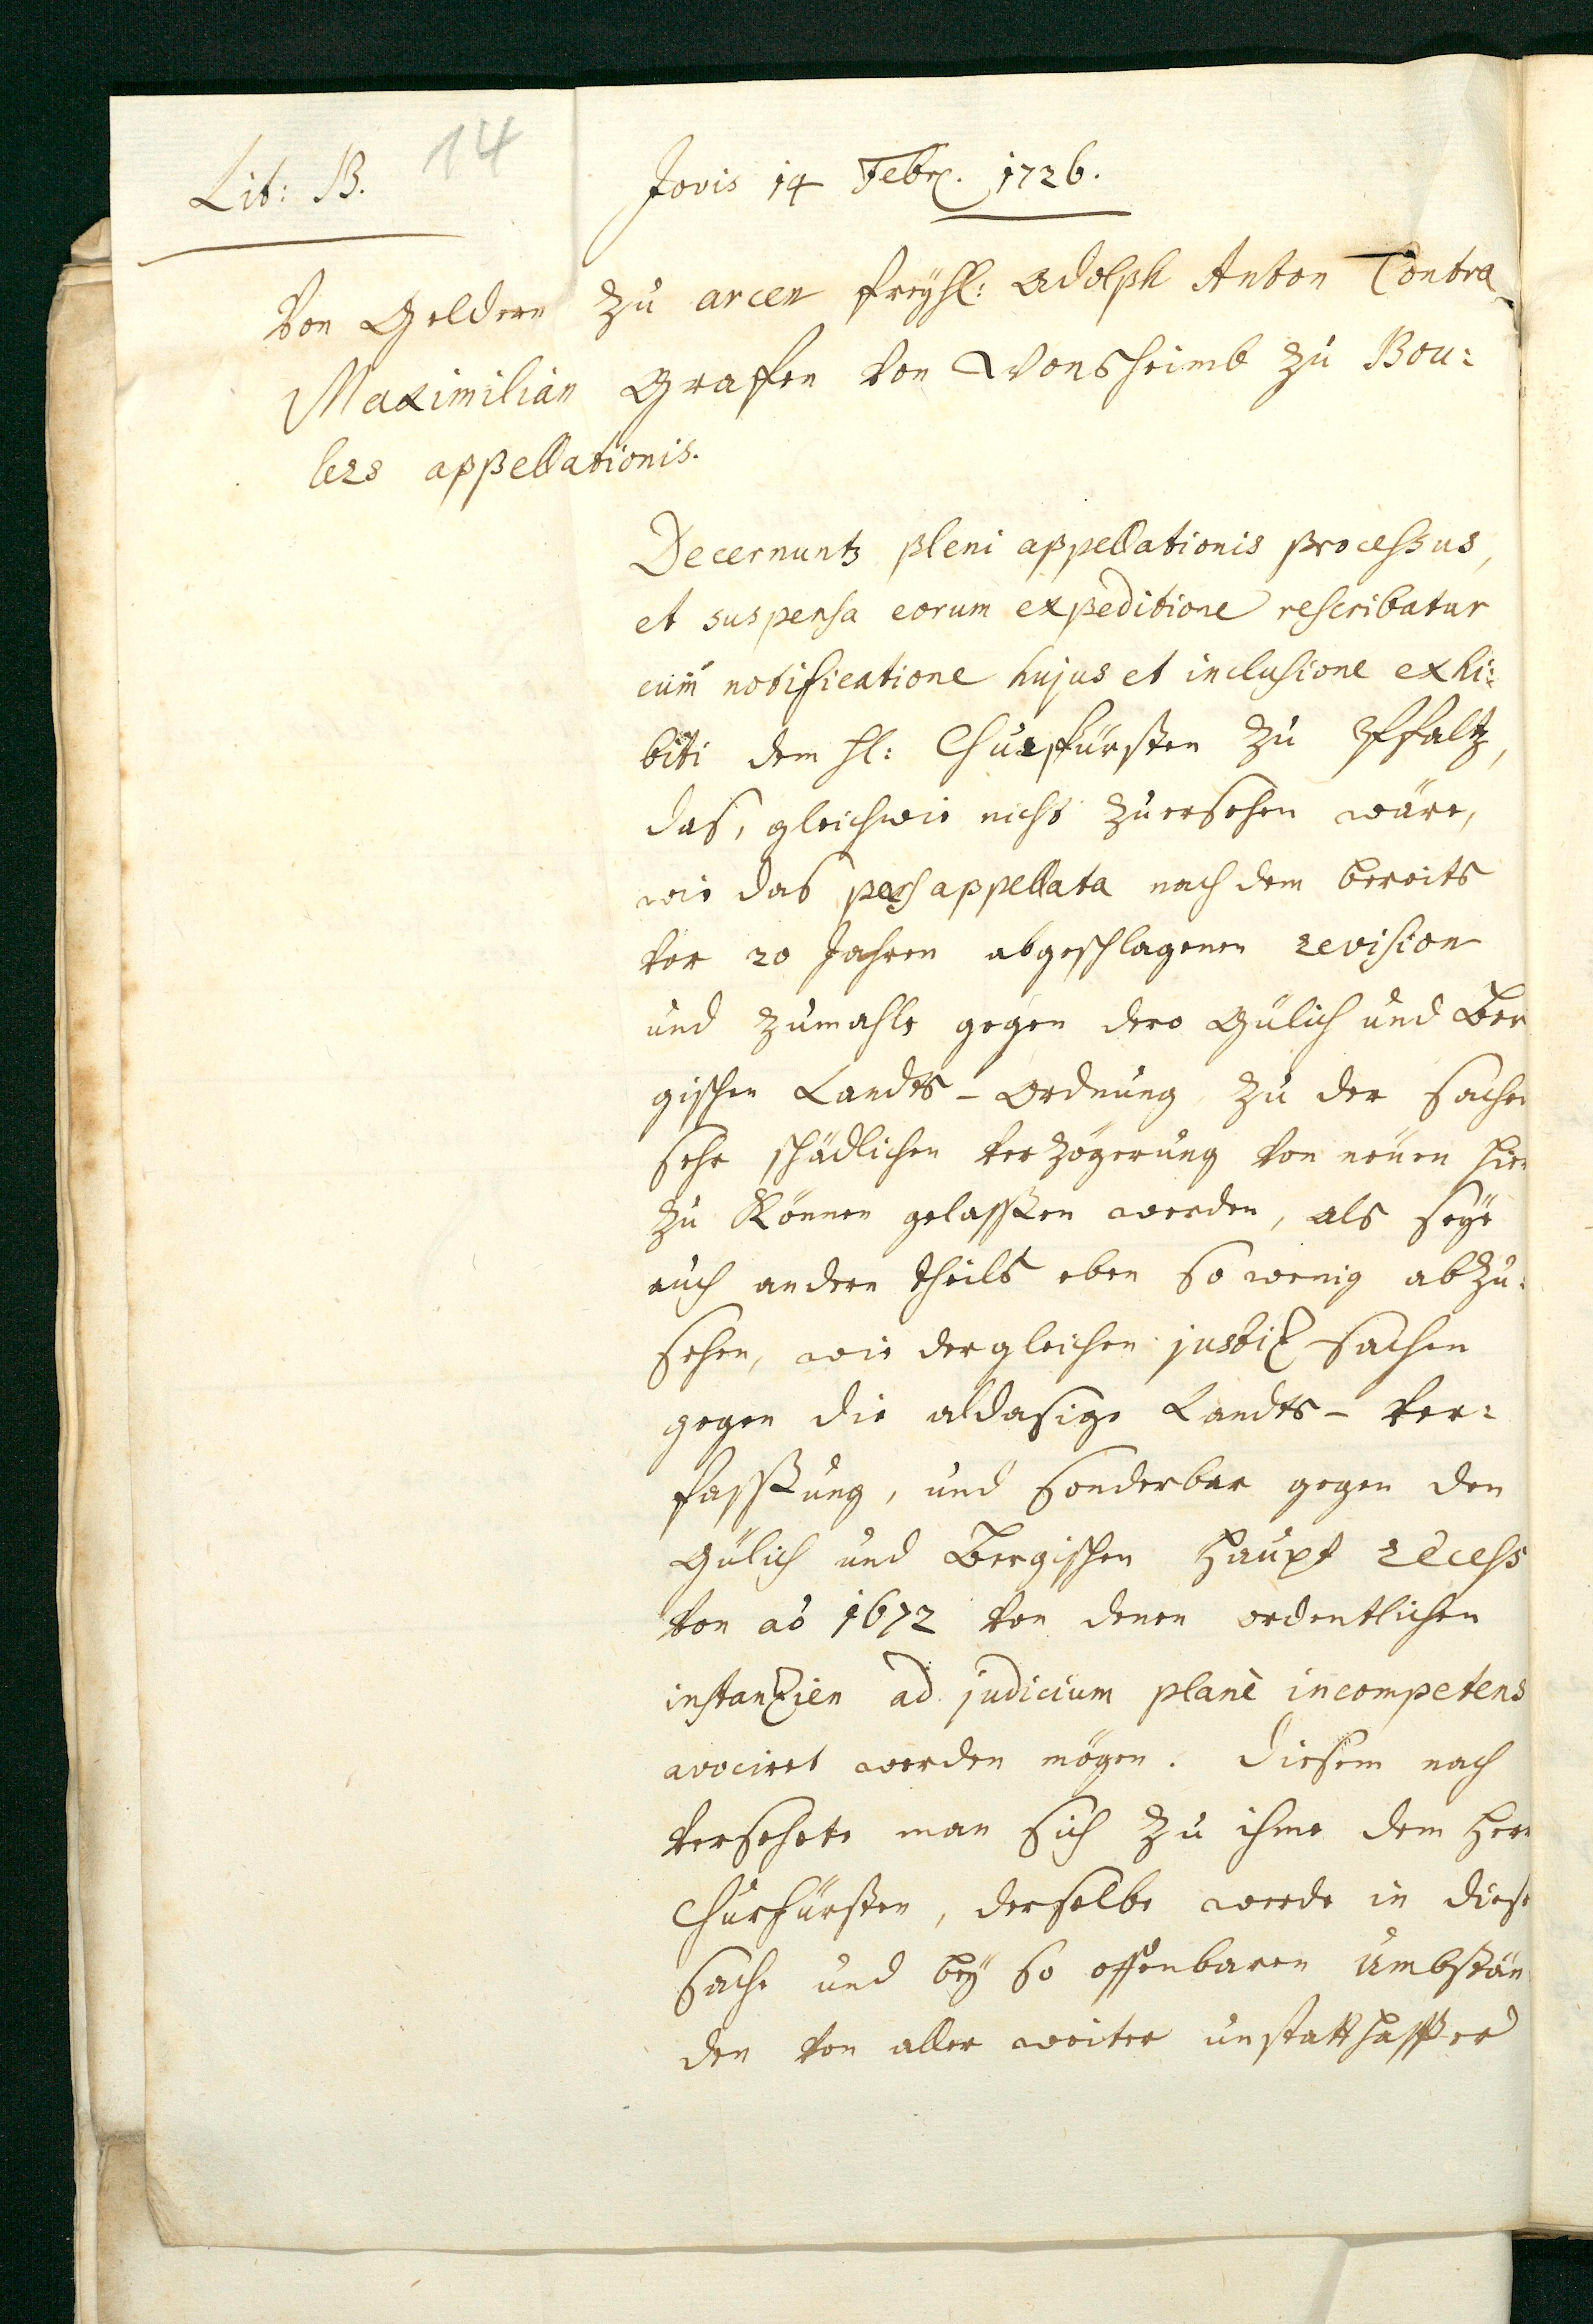 Lit: B. 14
Jovis 14 Febr. 1726.
Von Geldern zu arcen freyhl: Adolph Anton Contra
Maximilian Grafen von Wonsheimb zu Bou:
lers appellationis.
Decernuntr pleni appellationis processus,
et suspensa eorum expeditione rescribatur
cum notificatione hujus et inclusione exhi:
biti dem Hl: Churfürsten zu Pffaltz,
das, gleichwie nicht zuersehen wäre,
wie das pars appellata nach dem bereits
vor 20 Jahren abgeschlagenen revision
und zumahle gegen dero Gülich und Ber
gischen Landts-Ordnung zu der sachen
sehr schädlichen verzögerung von neuen hier
zu können gelassen werden, als seye
auch andern theils eben so wenig abzu:
sehen, wie dergleichen justiz-sachen
gegen die aldasige Landts-ver:
fassung, und sonderbar gegen den
Gülich und Bergischen Haupt recess
von aò 1672 von denen ordentlichen
instanzien ad judicium planè incompetens
avociret werden mögen. Diesem nach
versehete man sich zu ihme dem Herrn
Churfürsten, derselbe werde in diese
sache und bey so offenbaren Umbstän
den von aller weiter unstatthaffter